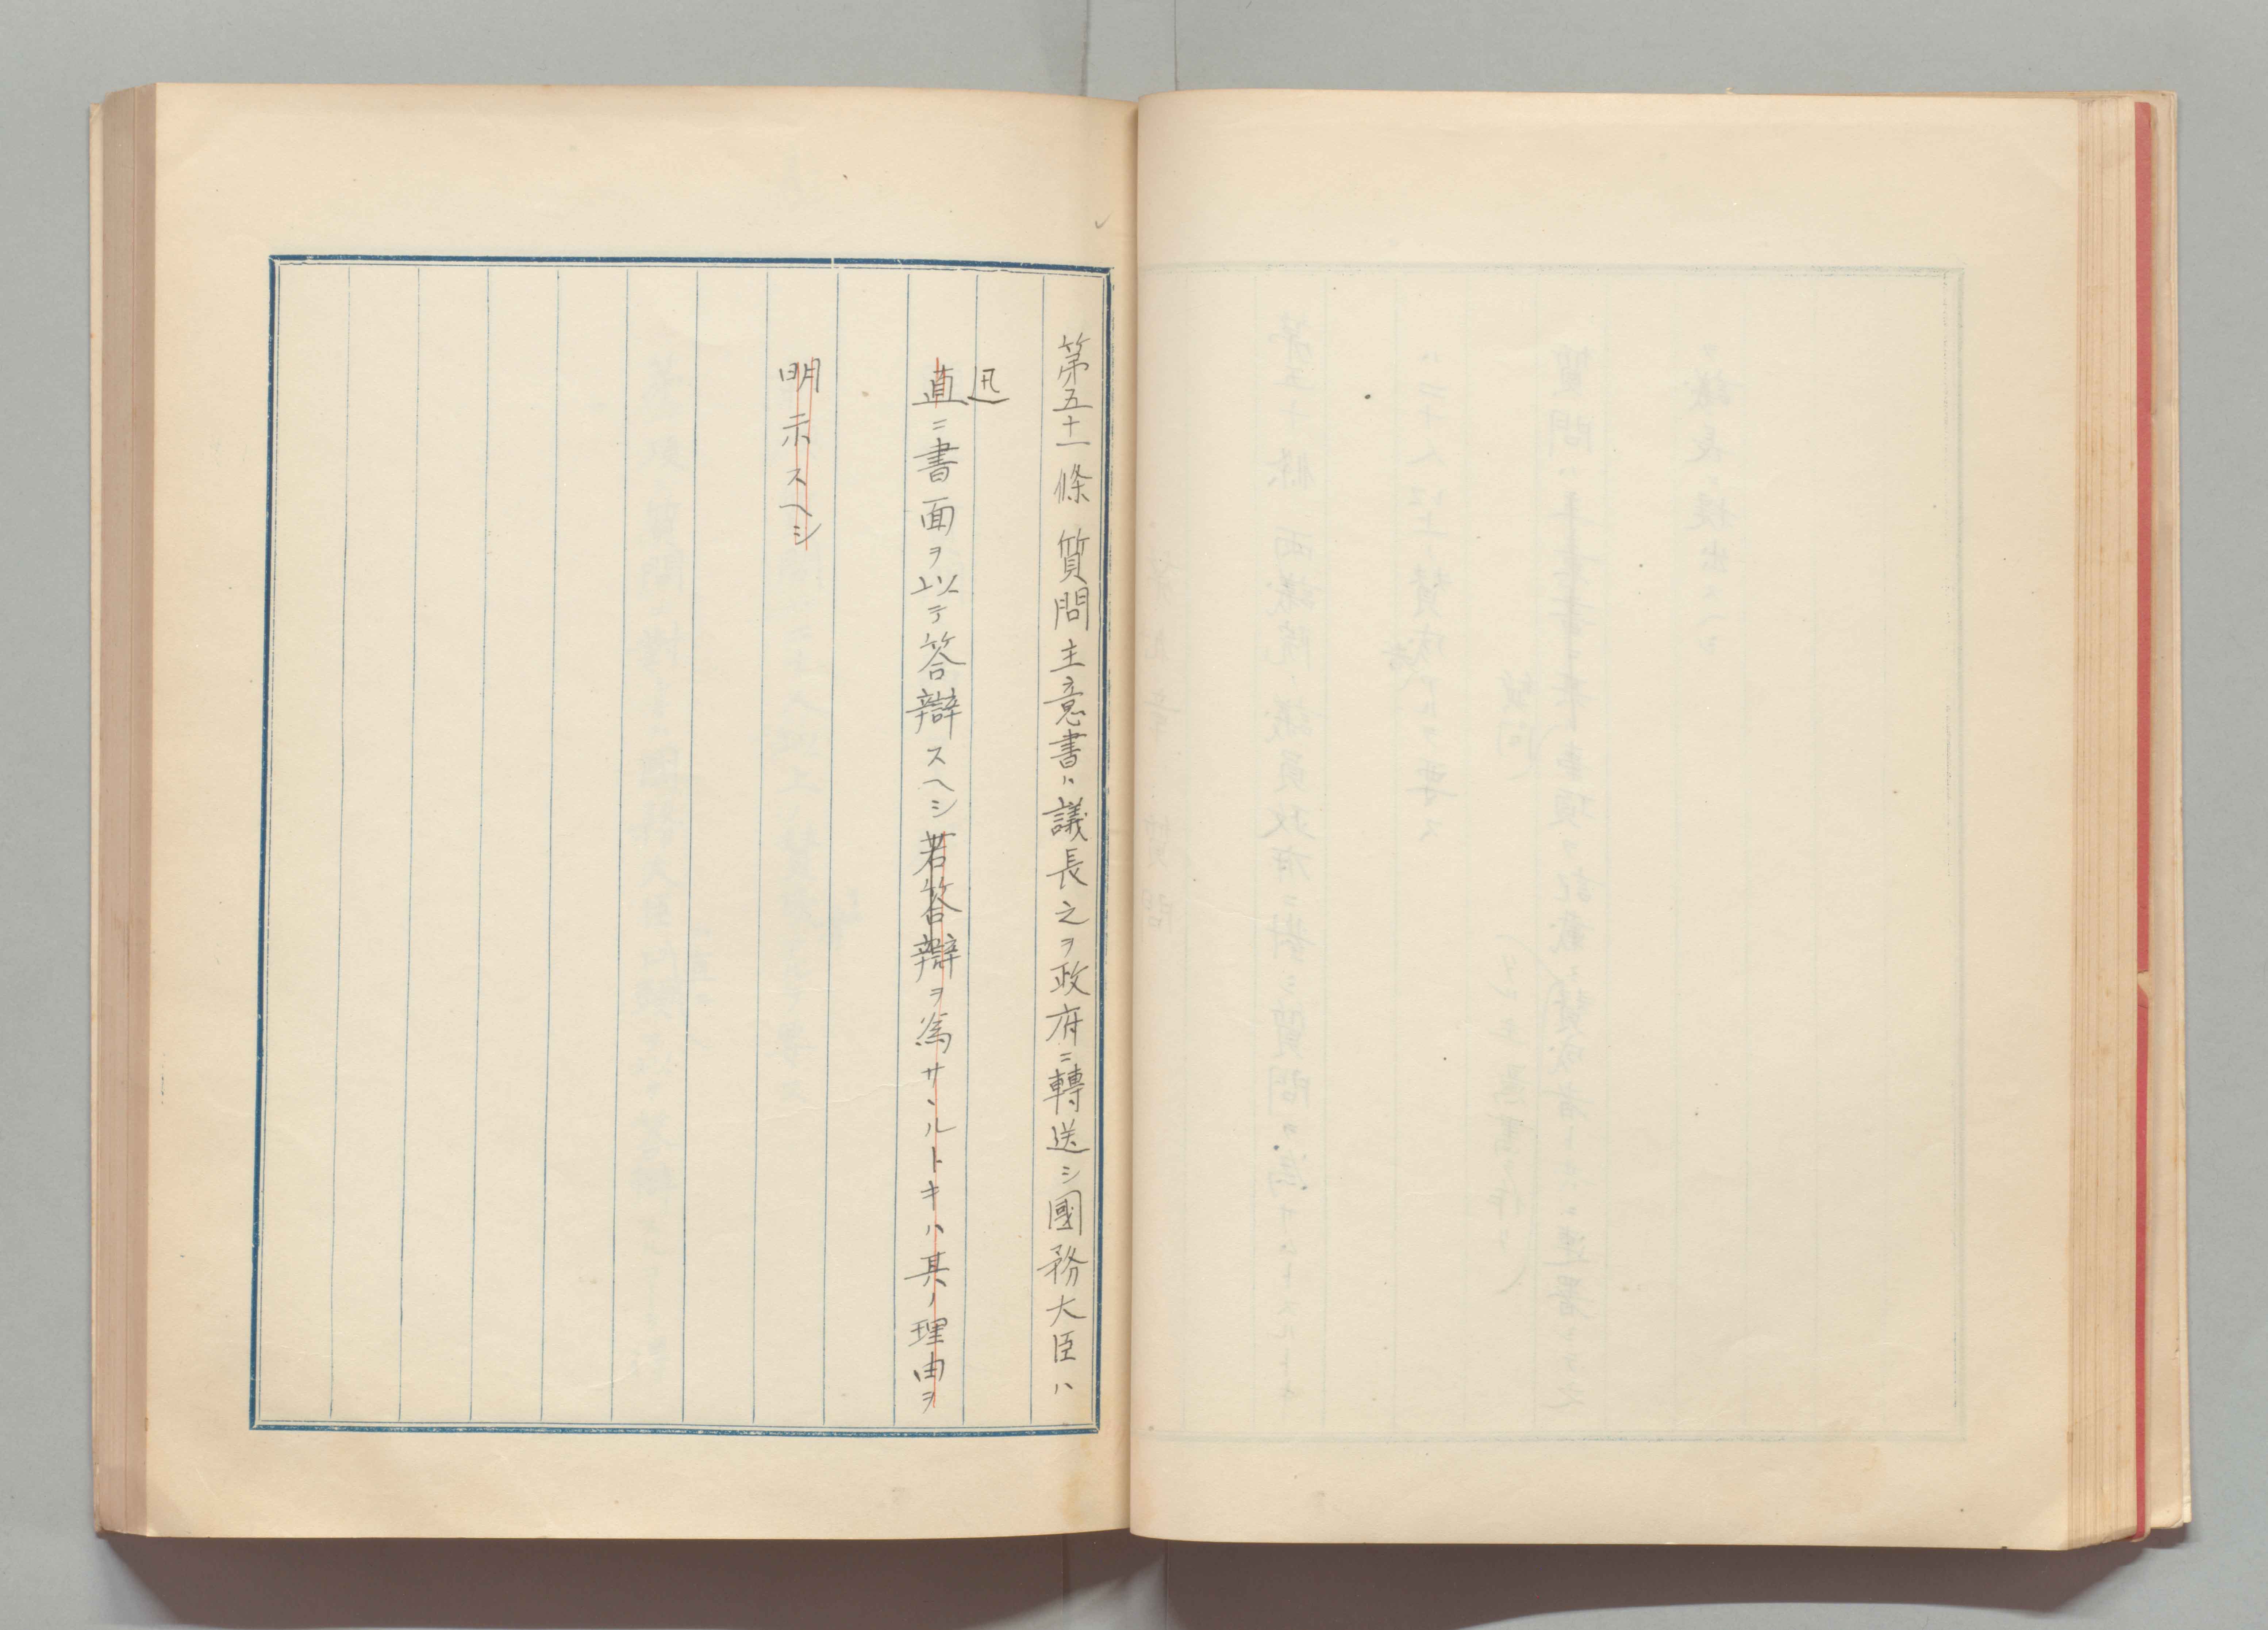 第五十一條 質問主意書ハ議長之ヲ政府ニ轉送シ國務大臣ハ
迅
直ニ書面ヲ以テ答辯スヘシ若答辯ヲ爲サヽルトキハ其ノ理由ヲ
明示スヘシ